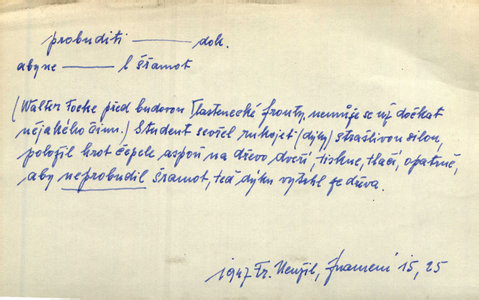 probuditi ——— dok.
aby ne ——— l šramot
(Walter Focke před budovou Vlastenecké fronty, nemůže se už dočkat
nějakého činu.) Student sevřel rukojeť (dýky) strašlivou silou,
položil hrot čepele aspoň na dřevo dveří, tiskne, tlačí, opatrně,
aby neprobudil šramot, teď dýku vytrhl ze dřeva.
1947 Fr. Neužil, Znamení 15, 25